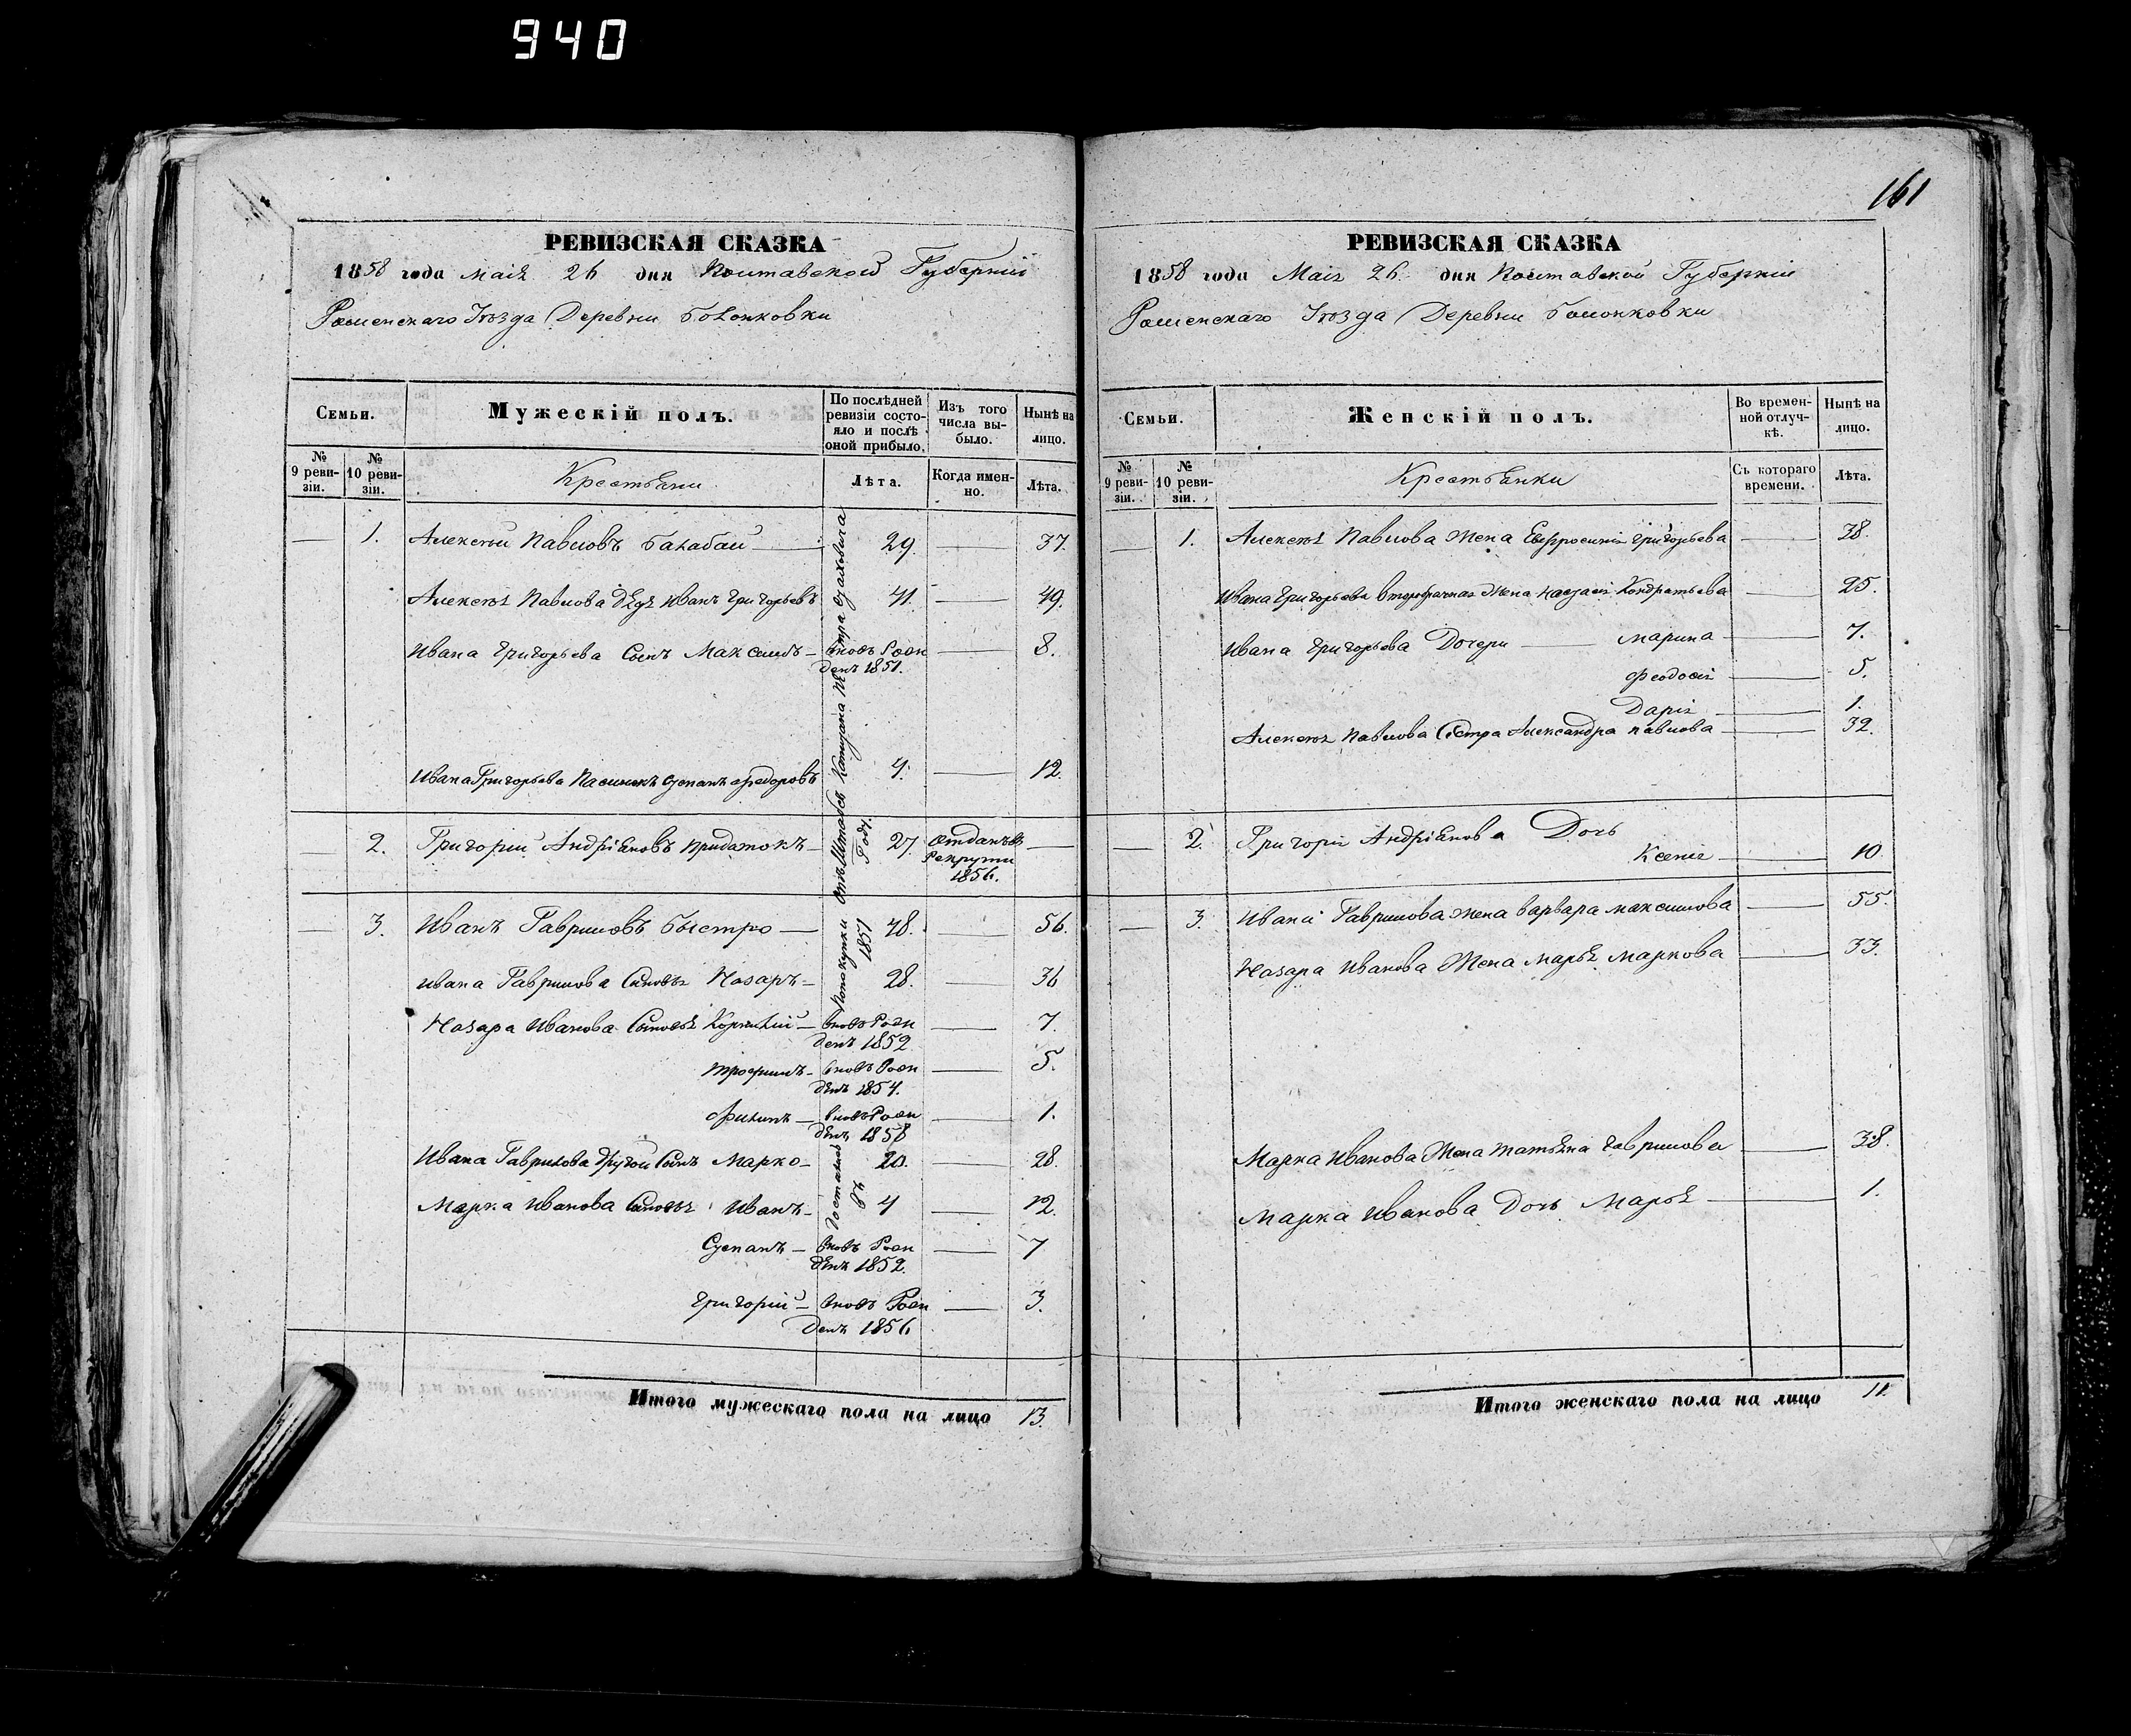 940
161
РЕВИЗСКАЯ СКАЗКА
1858 года Маія 26 дня Полтавской Губерніи
Роменскаго Уѣзда Деревни Болонковки
Семьи.
Мужескій полъ.
По послѣдней ревизіи состояло и послѣ оной прибыло.
Изъ того числа выбыло.
Нынѣ на лицо.
№ 9 ревизіи.
№ 10 ревизіи.
Крестьяни
Лѣта.
Когда именно.
Лѣта.
— 1. Алексѣй Павловъ Балабай — 29. — 37.
Алексѣя Павлова дядя Иванъ Григорьевъ 41. — 49.
Ивана Григорьева Сынъ Максимъ — вновь Рожденъ 1851. — 8.
Ивана Григорьева Пасынокъ Степанъ Федоровъ 4. — 12.
2. Григорій Андріяновъ Придатокъ — 27. Отданъ въ Рекруты 1856. —
— 3. Иванъ Гавриловъ Быстро — 48. — 56.
Ивана Гаврилова Сыновья Назаръ — 28. — 36
Назара Иванова Сыновья Корнилий — вновь Рожденъ 1852 — 7.
Трофимъ — вновь Рожденъ 1854. — 5.
Филипъ — вновь Рожденъ 1858 — 1.
Ивана Гаврилова другой Сынъ Марко — 20. — 28.
Марка Иванова Сыновья Иванъ — 4 — 12.
Степанъ — вновь Рожденъ 1852. — 7
Григорій — вновь Рожденъ 1856. — 3.
1851 Году.
Итого мужескаго пола на лицо 13.
РЕВИЗСКАЯ СКАЗКА
1858 года Маія 26 дня Полтавской Губерніи
Роменскаго Уѣзда Деревни Болонковки
Семьи.
Женскій полъ.
Во временной отлучкѣ.
Нынѣ на лицо.
№ 9 ревизіи.
№ 10 ревизіи.
Крестьянки
Съ котораго времени.
Лѣта.
— 1. Алексѣя Павлова Жена Евфросинія Григорьева — 38.
Ивана Григорьева второбрачная Жена Настасія Кондратьева — 25.
Ивана Григорьева Дочери — Марина — 7.
Феодосія — 5.
Дарія — 1.
Алексѣя Павлова Сестра Александра Павлова — 32.
— 2. Григорія Андріянова Дочь
Ксенія — 10
— 3. Ивана Гаврилова Жена Варвара Максимова — 55.
Назара Иванова Жена Марья Маркова — 33.
Марка Иванова Жена Татьяна Гаврилова — 38.
Марка Иванова Дочь Марья — 1.
Итого женскаго пола на лицо 11.